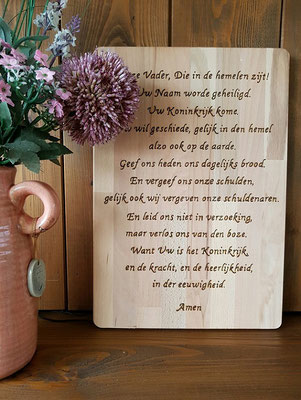 Vader, Die in de hemelen zijt!
Uw Naam worde geheiligd.
Uw Koninkrijk kome.
wil geschiede, gelijk in den hemel
alzo ook op de aarde.
Geef ons heden ons dagelijks brood.
En vergeef ons onze schulden,
gelijk ook wij vergeven onze schuldenaren.
En leid ons niet in verzoeking,
maar verlos ons van den boze.
Want Uw is het Koninkrijk,
en de kracht, en de heerlijkheid,
in der eeuwigheid.
Amen